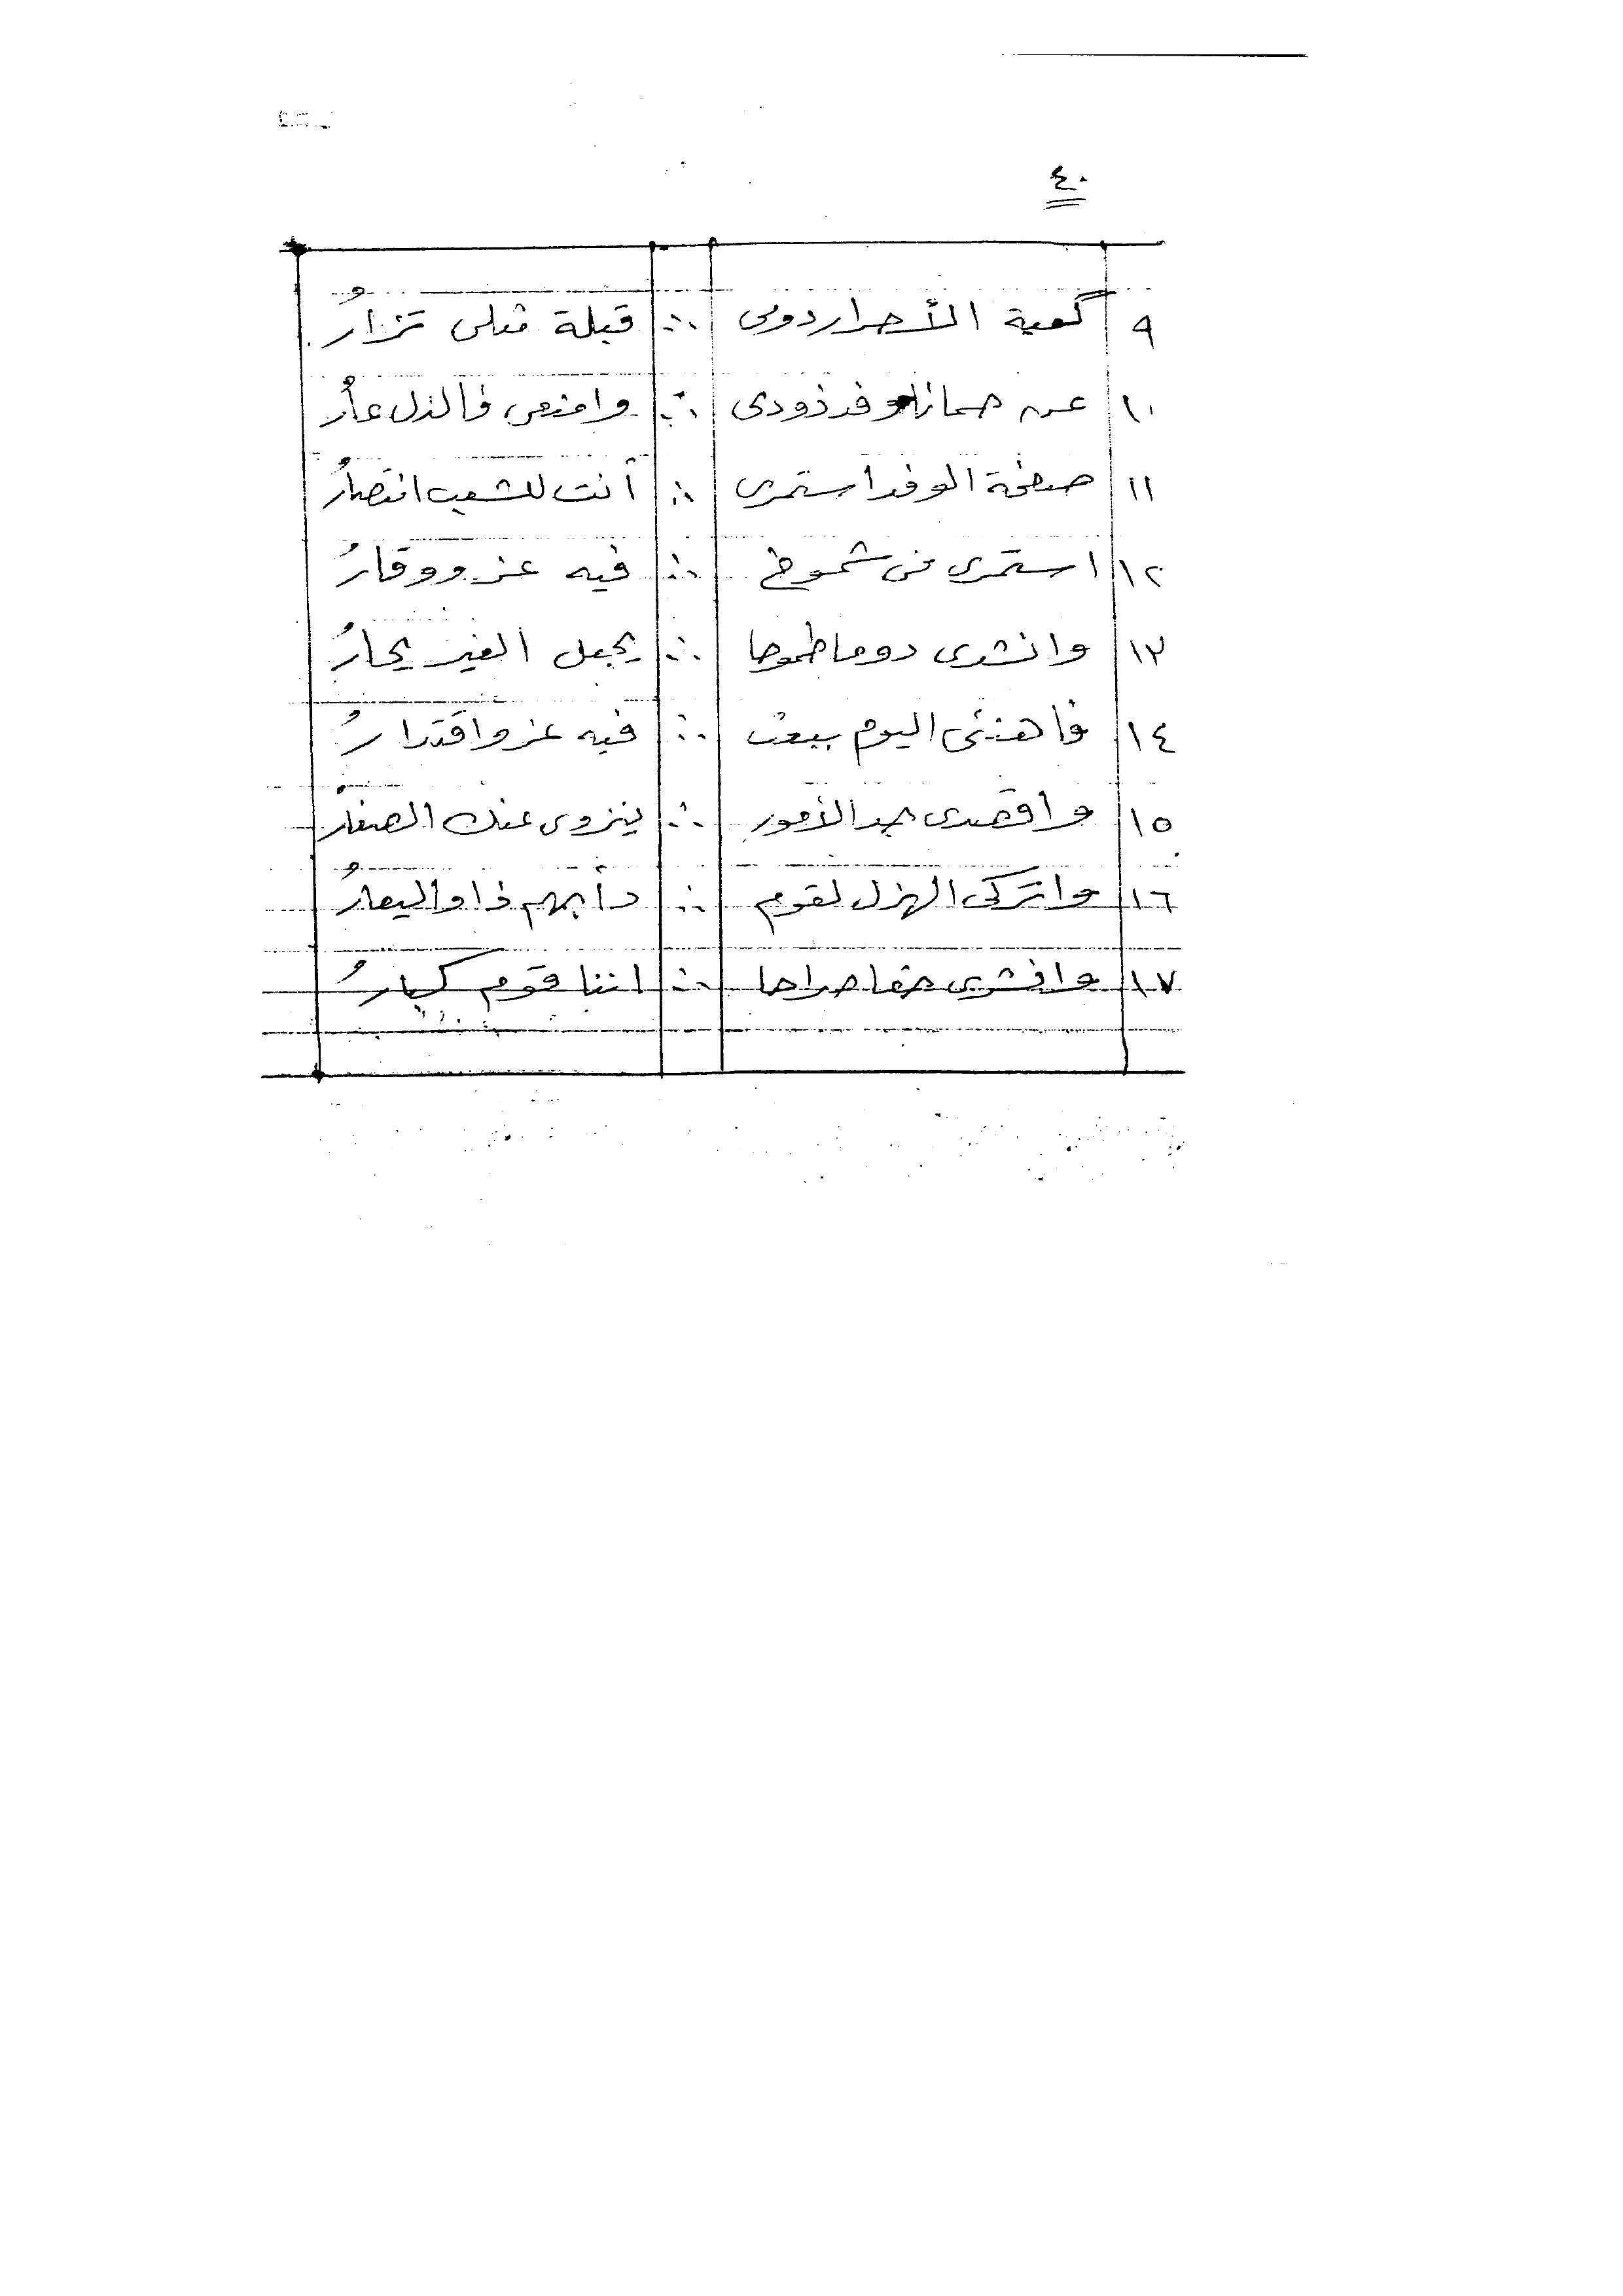 ٤٠
٩ كعبة الأحرار دومى ∴ قبلة مثلى تزارُ
١٠ عن حمانا وفد ذودى ∴ وامنعى فالذل عارُ
١١ صفحة الوفد استمرى ∴ أنت للشعب انتصارُ
١٢ استمرى فى شموخ ∴ فيه عز ووقارُ
١٣ وانشدى دوما طموحا ∴ يجعل الغير يحارُ
١٤ فاهنئى اليوم ببعث ∴ فيه عز واقتدارُ
١٥ واقصدى جد الأمور ∴ ينزوى عنك الصغارُ
١٦ واتركى الهزل لقوم ∴ دأبهم ذا واليعارُ
١٧ وانشرى حقا صراحا ∴ اننا قوم كبارُ